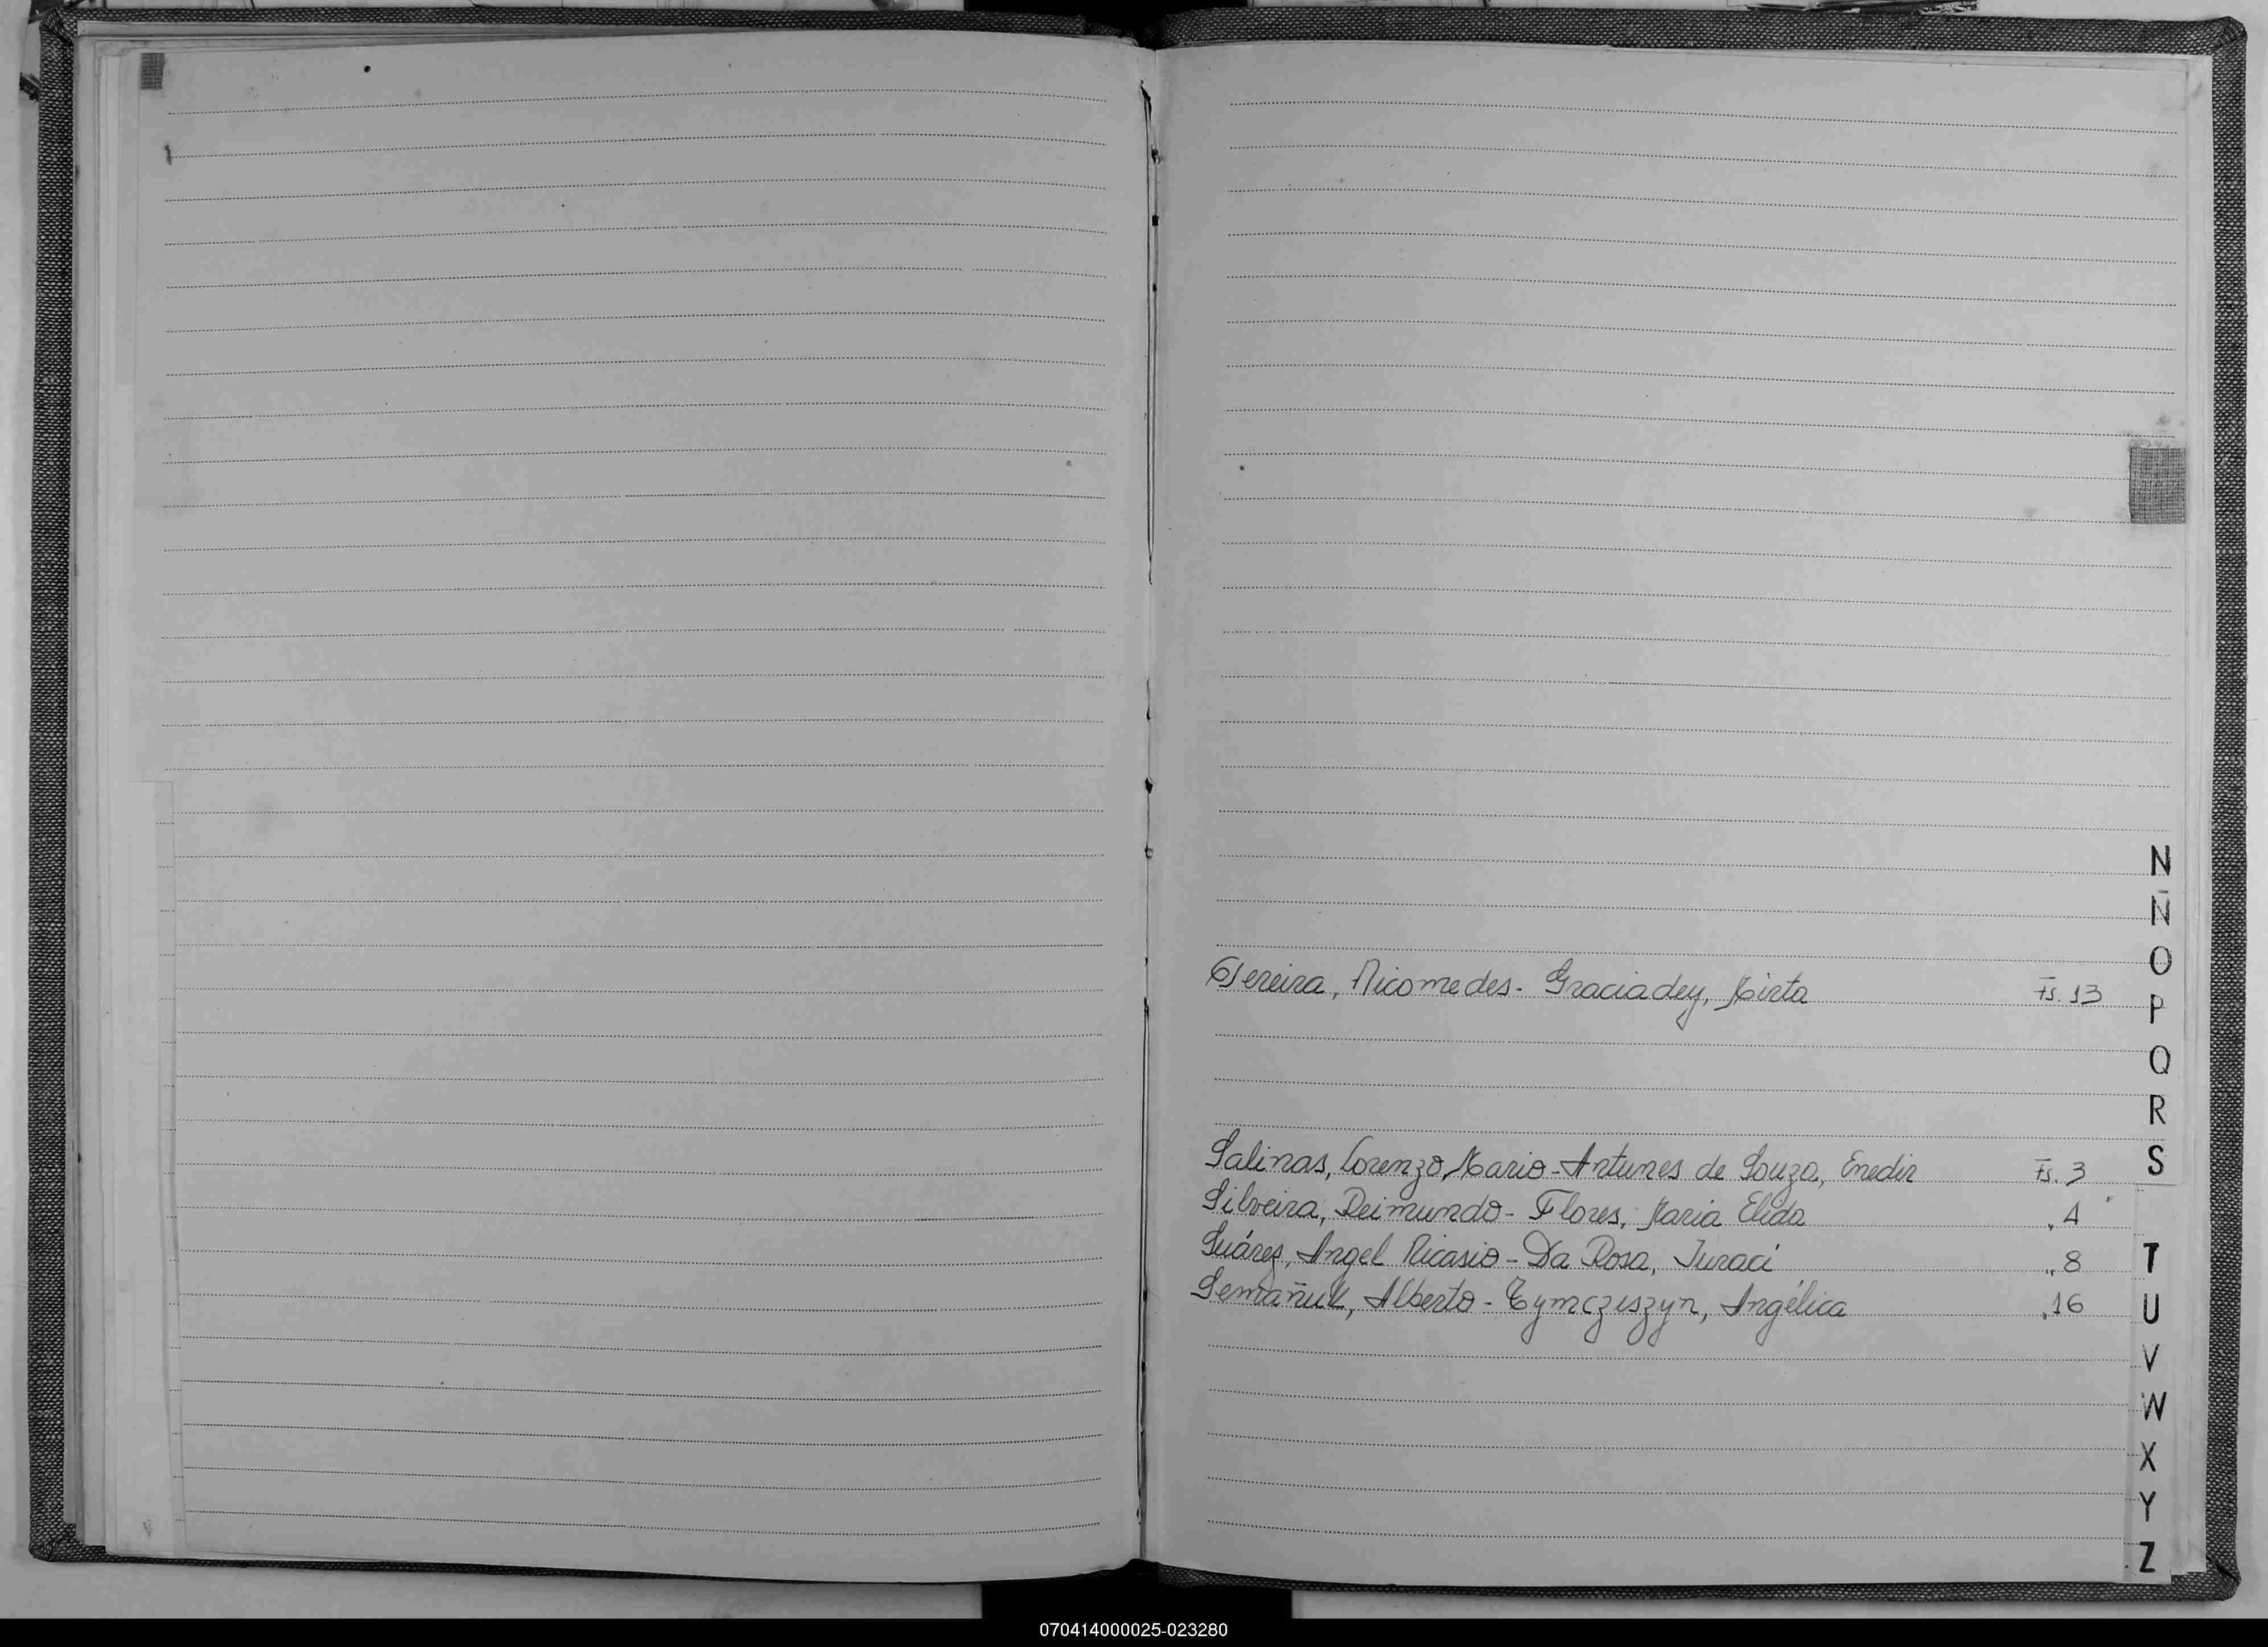 N
Ñ
O
Pereira, Nicomedes - Graciadey, Mirta Fs. 13
P
Q
R
S
Salinas, Lorenzo, Mario - Antunes de Souza, Enedir Fs. 3
Silveira, Reimundo - Flores, María Elida " 4
Suárez, Angel Nicasio - Da Rosa, Juraci " 8
T
Semañuk, Alberto - Tymcziszyn, Angélica " 16
U
V
W
X
Y
Z
070414000025-023280